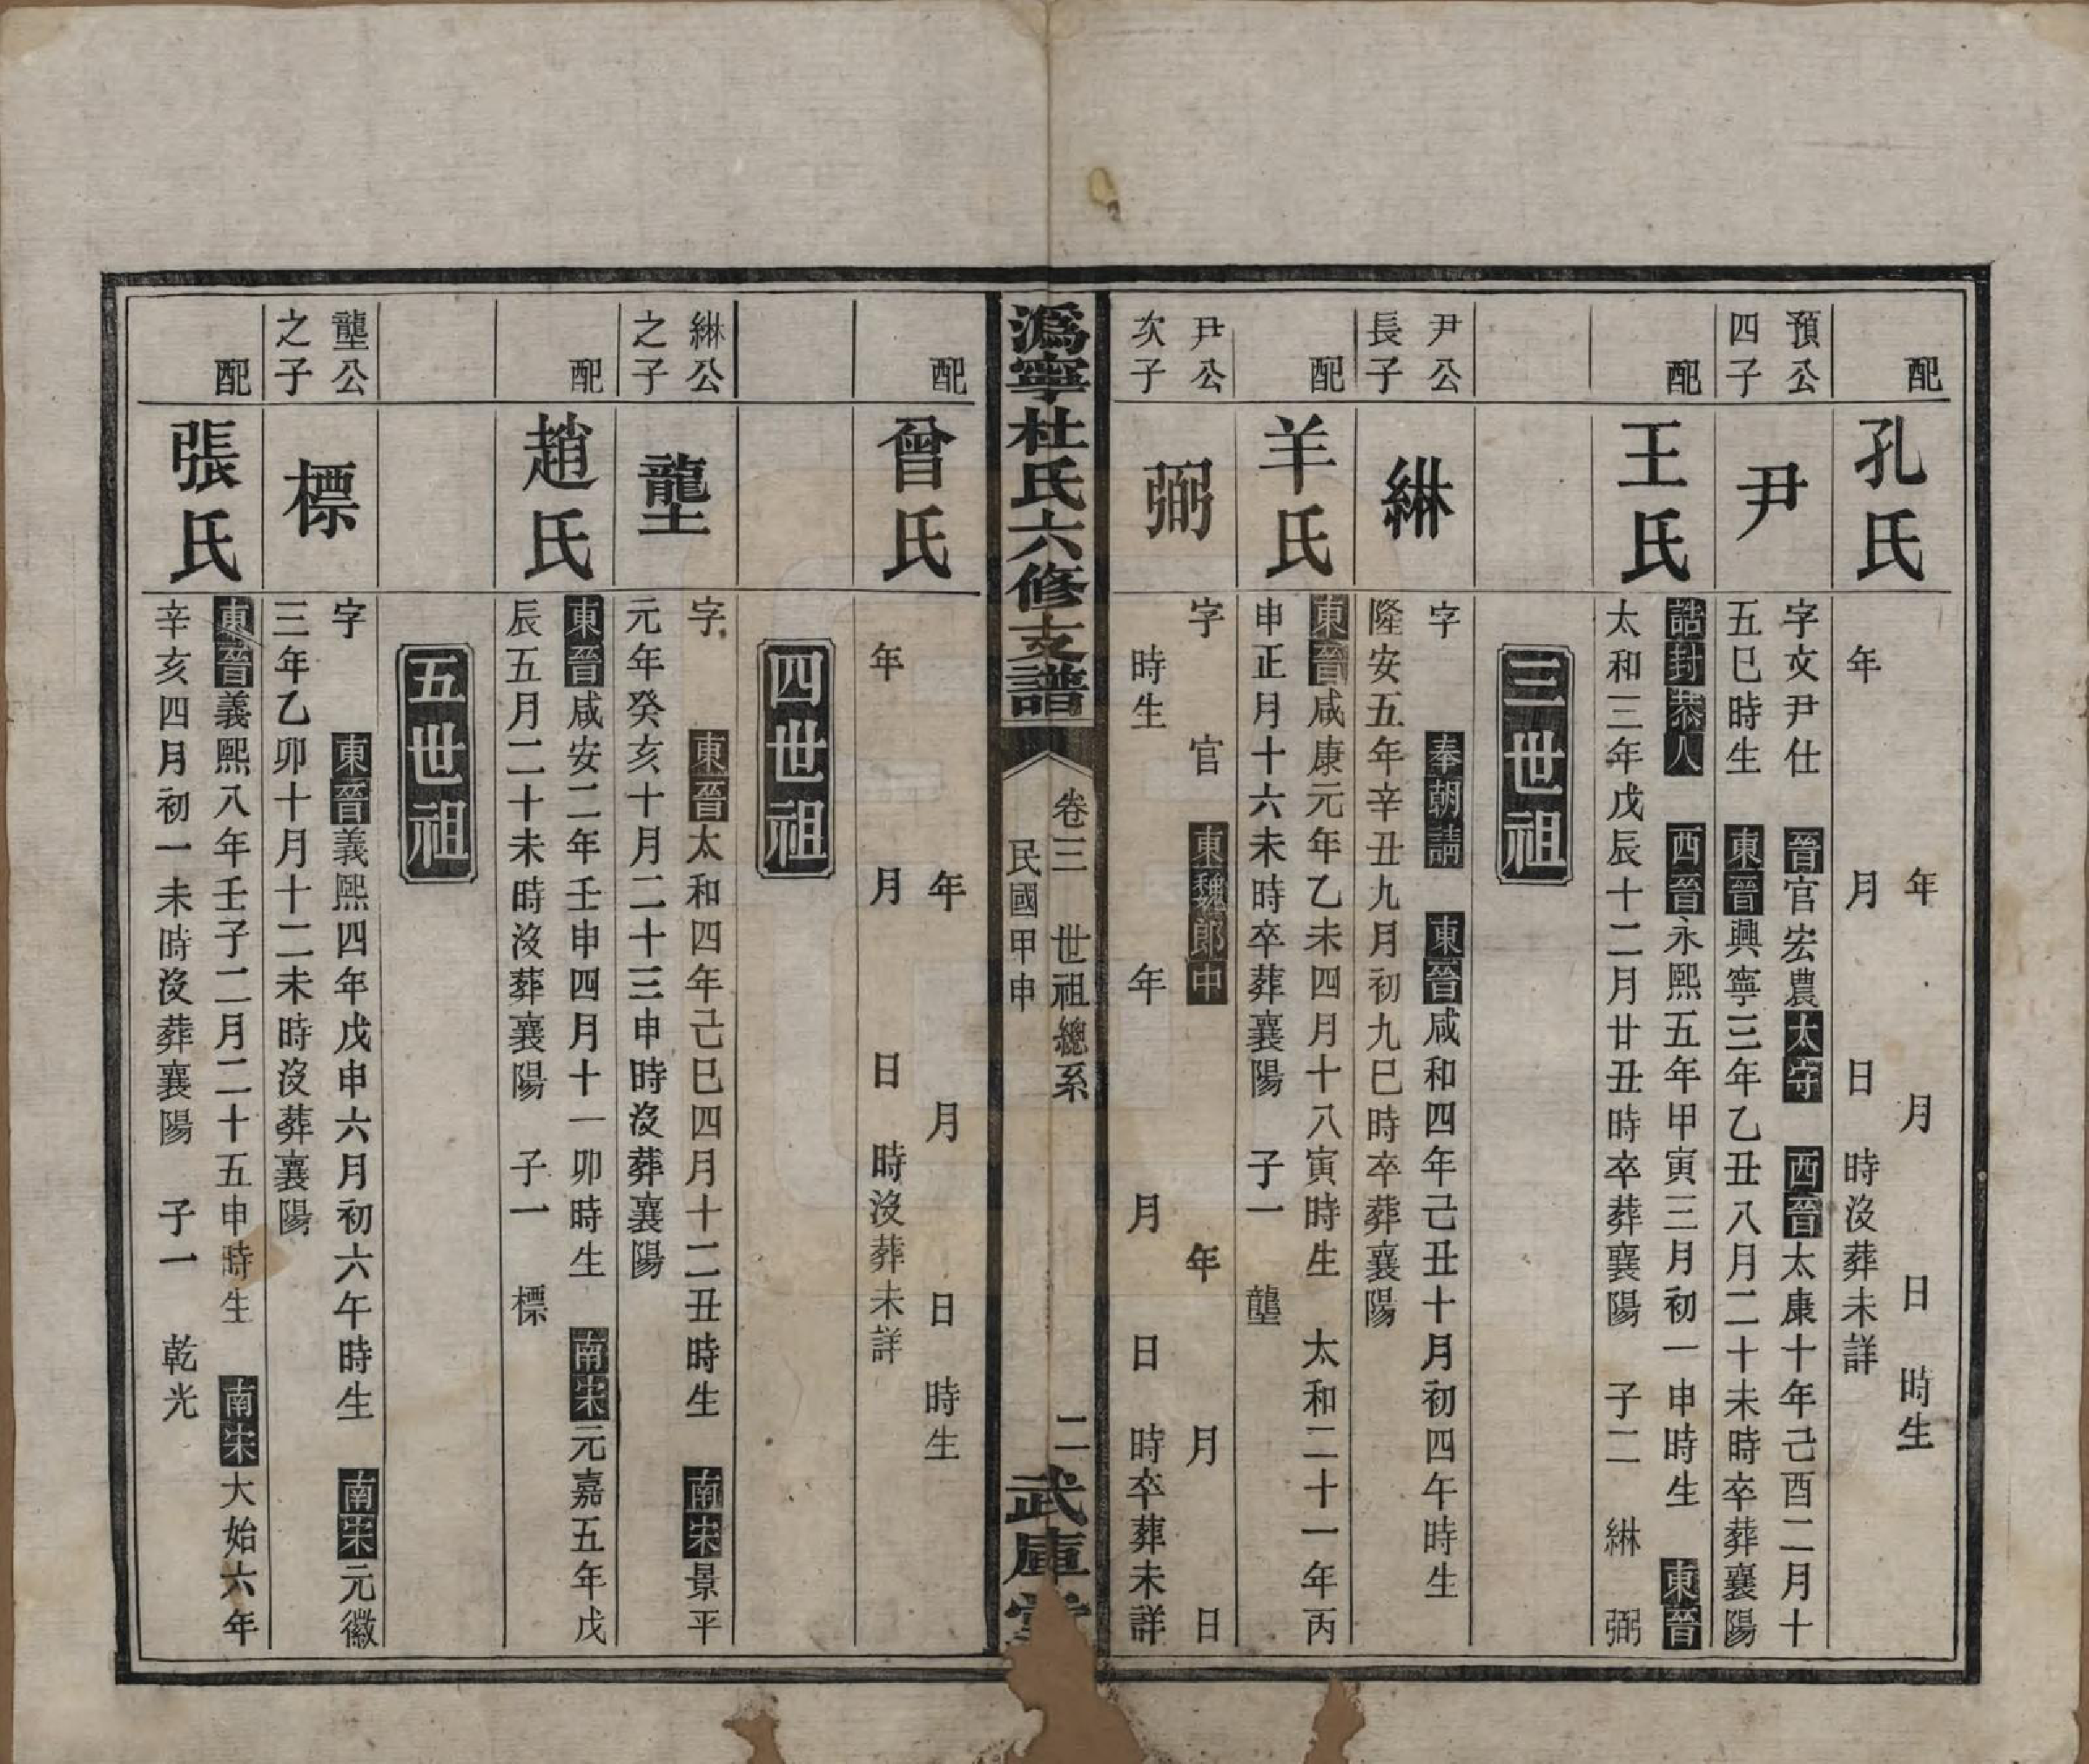 配
孔氏
年　月　日　時生
年　月　日　時沒葬未詳
預公
四子
尹
字文尹仕　晉官宏農太守　西晉太康十年己酉二月十
五巳時生　東晉興寧三年乙丑八月二十未時卒葬襄陽
配
王氏
誥封恭人　西晉永熙五年甲寅三月初一申時生　東晉
太和三年戊辰十二月廿丑時卒葬襄陽　子二　綝　弼
三世祖
尹公
長子
綝
字　奉朝請　東晉咸和四年己丑十月初四午時生
隆安五年辛丑九月初九巳時卒葬襄陽
配
羊氏
東晉咸康元年乙未四月十八寅時生　太和二十一年丙
申正月十六未時卒葬襄陽　子一　壟
尹公
次子
弼
字　官　東魏郎中　年　月　日
時生　年　月　日　時卒葬未詳
溈寧杜氏六修支譜
卷三　世祖總系　二
民國甲申
武庫堂
配
曾氏
年　月　日　時生
年　月　日　時沒葬未詳
四世祖
綝公
之子
壟
字　東晉太和四年己巳四月十二丑時生　南宋景平
元年癸亥十月二十三申時沒葬襄陽
配
趙氏
東晉咸安二年壬申四月十一卯時生　南宋元嘉五年戊
辰五月二十未時沒葬襄陽　子一　標
五世祖
壟公
之子
標
字　東晉義熙四年戊申六月初六午時生　南宋元徽
三年乙卯十月十二未時沒葬襄陽
配
張氏
東晉義熙八年壬子二月二十五申時生　南宋大始六年
辛亥四月初一未時沒葬襄陽　子一　乾光